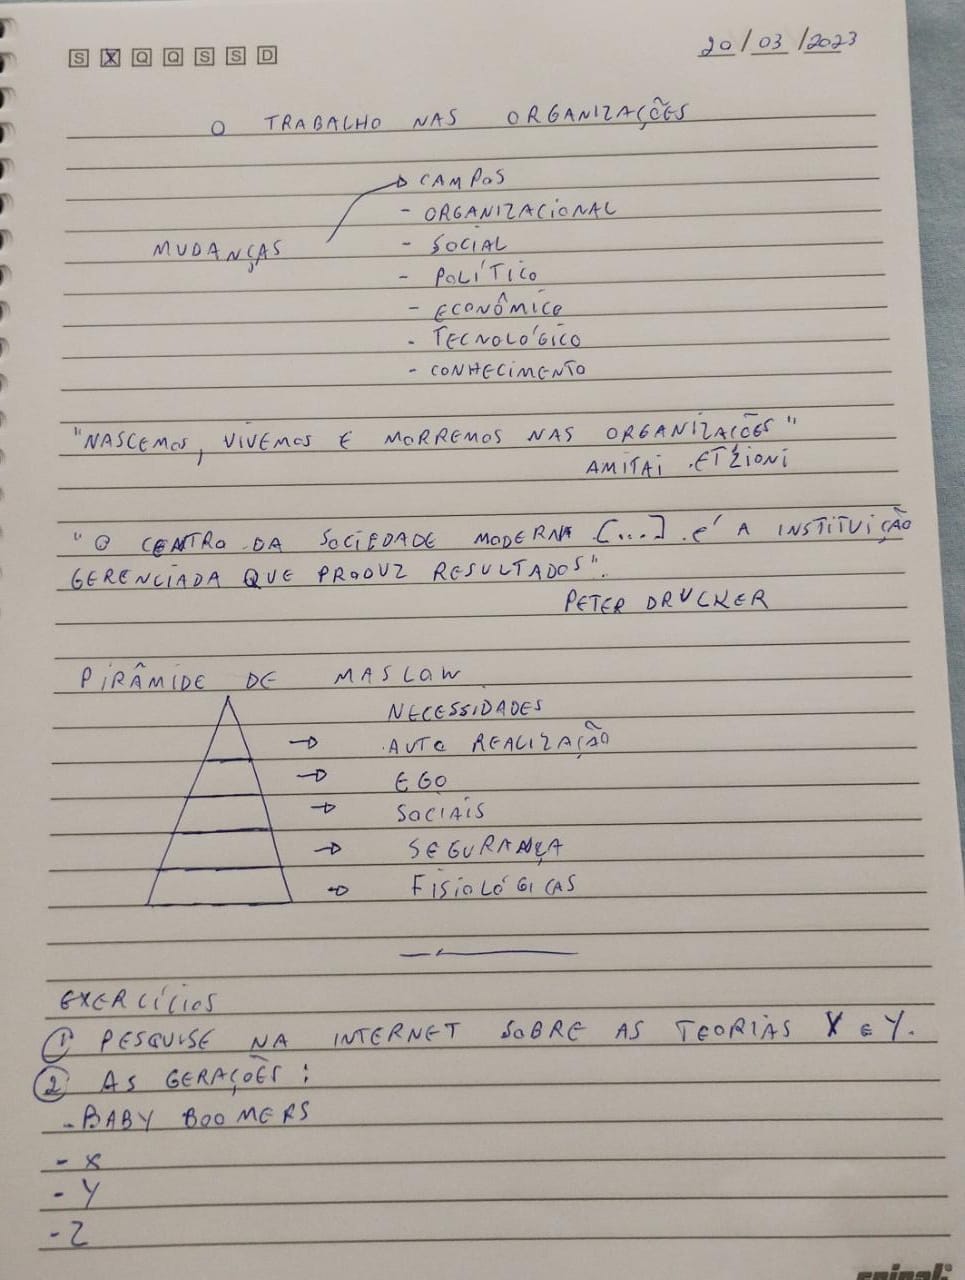 S X Q Q S S D
20/03/2023
O TRABALHO NAS ORGANIZAÇÕES
CAMPOS
- ORGANIZACIONAL
MUDANÇAS - SOCIAL
- POLÍTICO
- ECONÔMICO
- TECNOLÓGICO
- CONHECIMENTO
"NASCEMOS, VIVEMOS E MORREMOS NAS ORGANIZAÇÕES"
AMITAI ETZIONI
"O CENTRO DA SOCIEDADE MODERNA [...] É A INSTITUIÇÃO
GERENCIADA QUE PRODUZ RESULTADOS".
PETER DRUCKER
PIRÂMIDE DE MASLOW
NECESSIDADES
AUTO REALIZAÇÃO
EGO
SOCIAIS
SEGURANÇA
FISIOLÓGICAS
EXERCÍCIOS
1 PESQUISE NA INTERNET SOBRE AS TEORIAS X E Y.
2 AS GERAÇÕES:
- BABY BOOMERS
- X
- Y
- Z
spiral